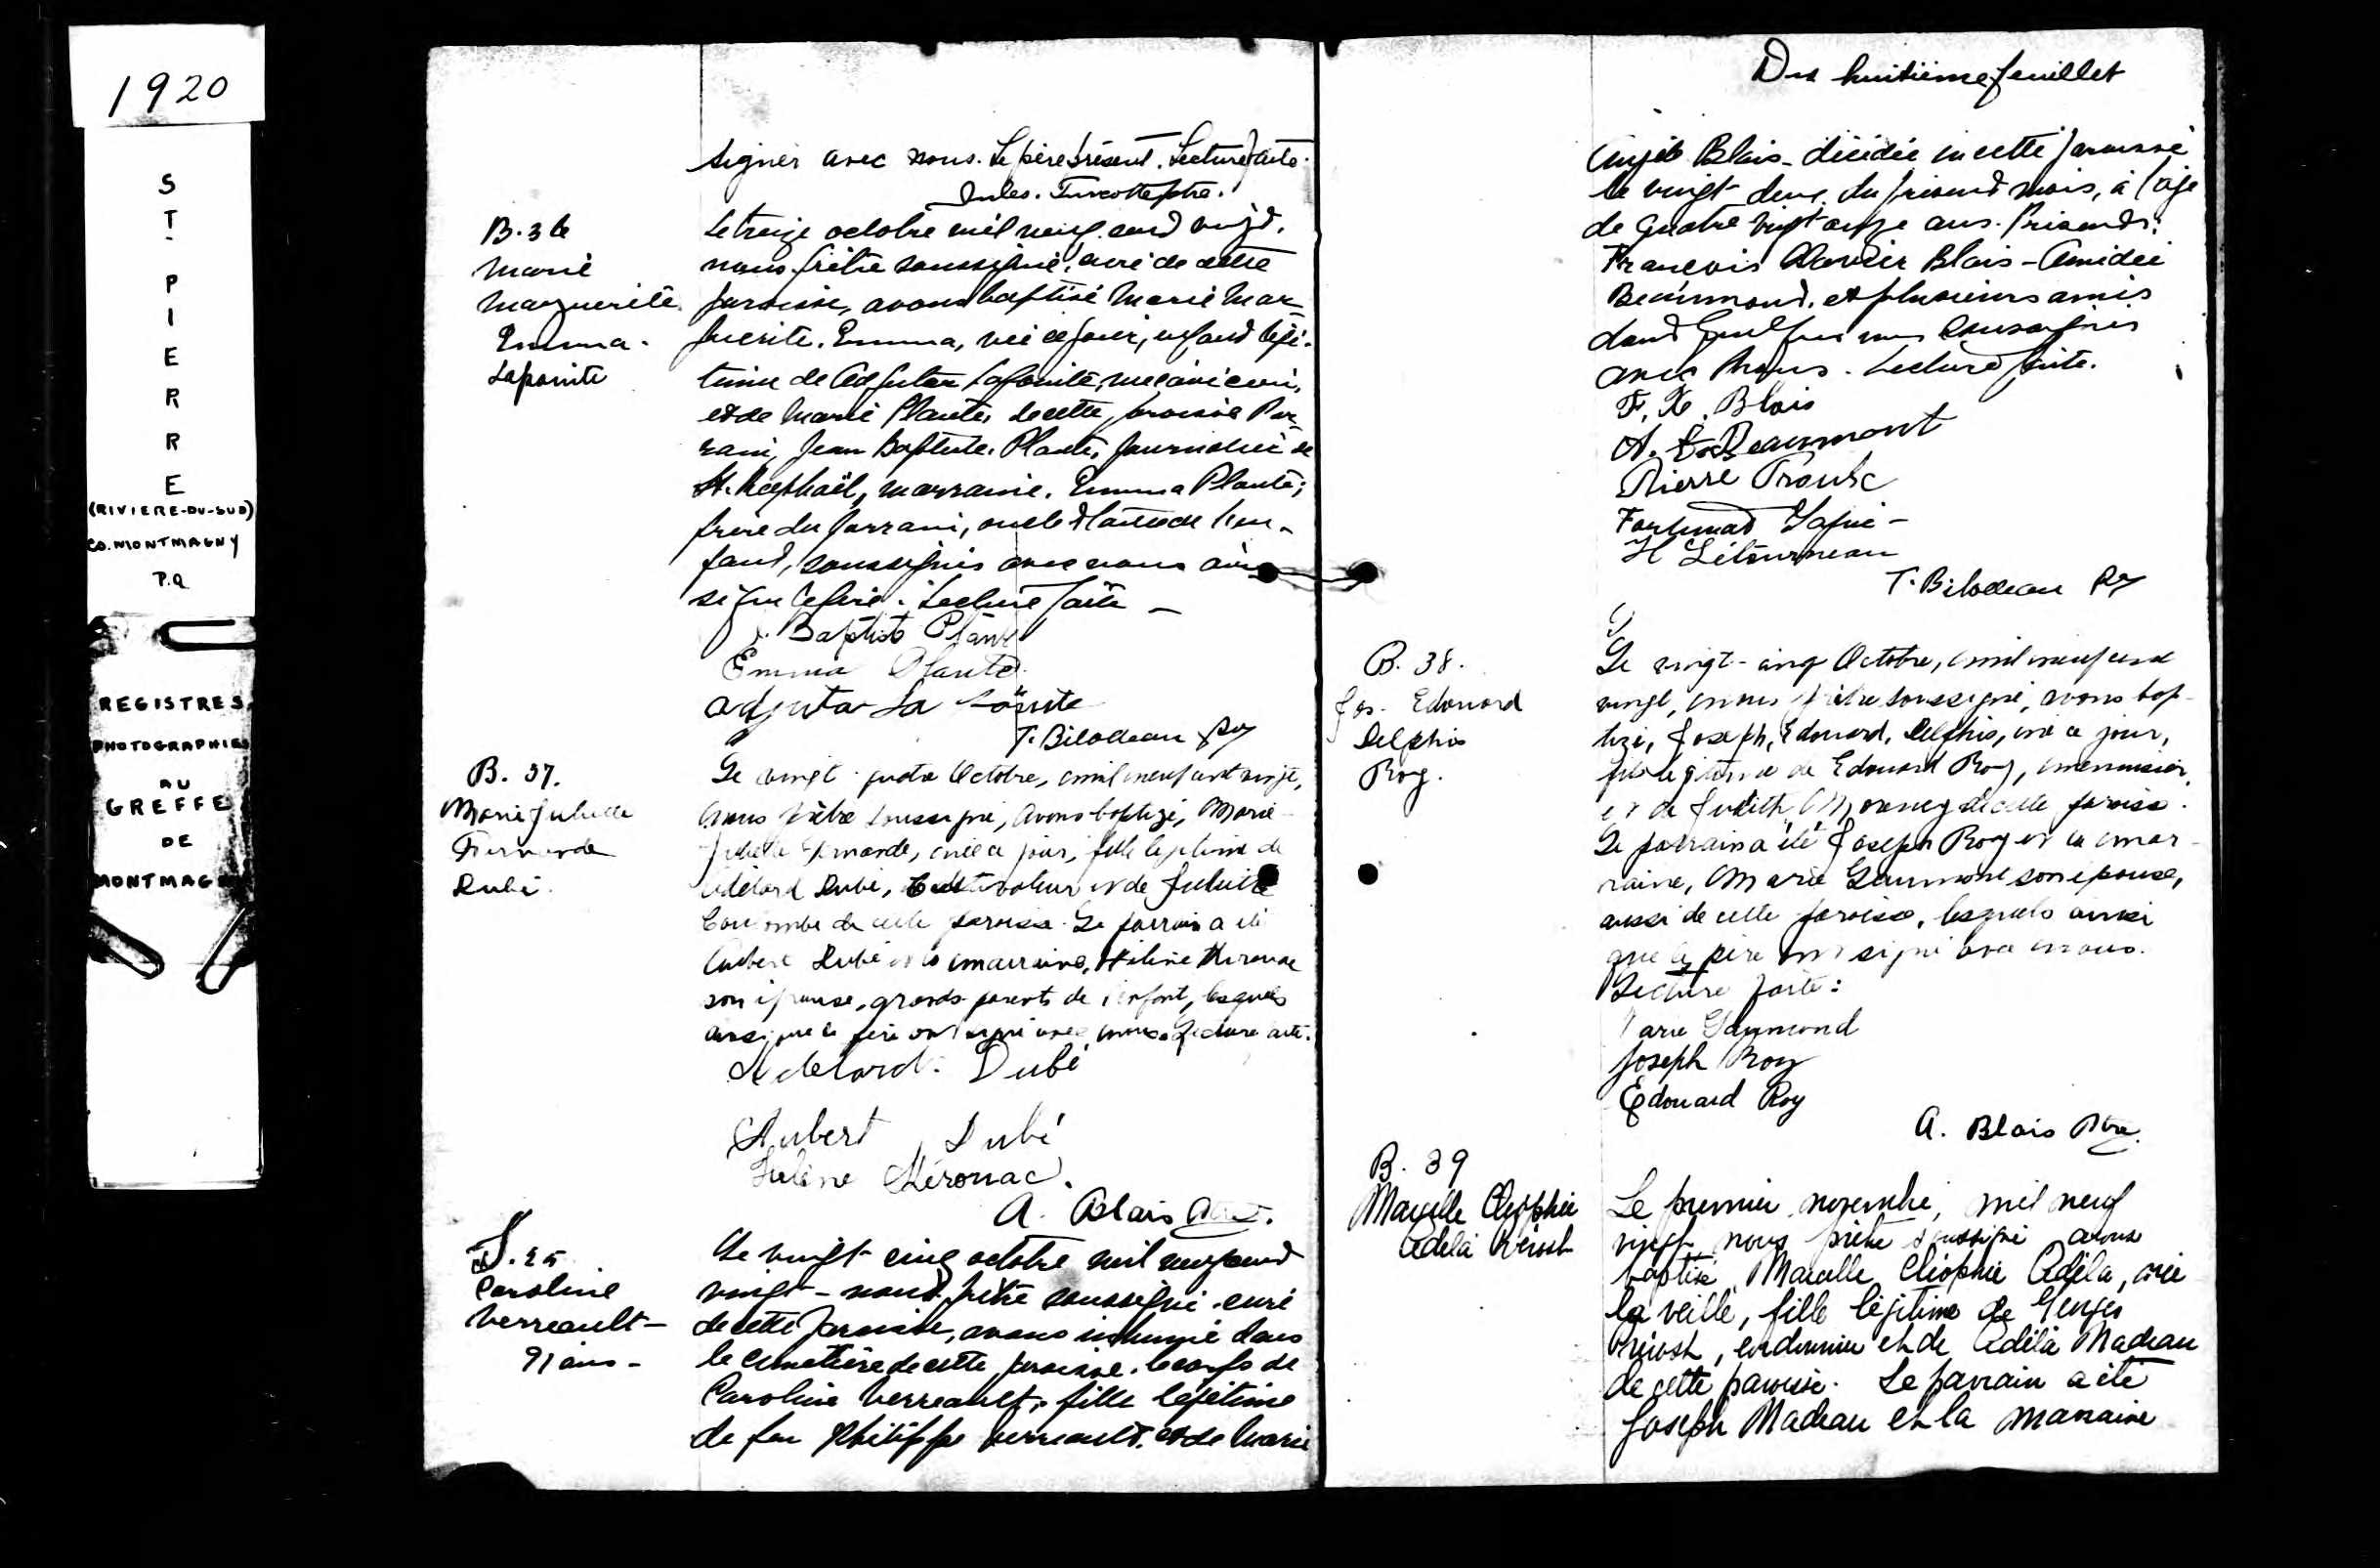 1920
ST-PIERRE
(RIVIERE-DU-SUD)
CO. MONTMAGNY
P.Q
REGISTRES
PHOTOGRAPHIES
AU
GREFFE
DE
MONTMAG
signer avec nous. Le père présent. Lecture faite.
Jules. Turcotte ptre.
B. 36
Marie
Marguerite
Emma.
Lapointe
Le treize octobre mil neuf cent vingt,
nous prêtre soussigné, curé de cette
paroisse, avons baptisé Marie Mar-
guerite, Emma, née ce jour, enfant légi-
time de Adjutor Lapointe, mécanicien,
et de Marie Plante, de cette paroisse Par-
rain, Jean Baptiste Plante, journalier de
St. Raphaël, marraine, Emma Plante,
du parrain, oncle tante de l'en-
fant, soussignés avec nous ain
si que le père. Lecture faite -
J. Baptist Plante
Emma Plante
Adjutor La Pointe
T. Bilodeau ptre
B. 37.
Marie Juliette
Fernande
Dubé.
Le vingt-quatre Octobre, mil neuf cent vingt,
nous prêtre soussigné, avons baptizé, Marie
Juliette Fernande, née ce jour, fille légitime de
Adélard Dubé, Cultivateur et de Juliette
Coulombe de cette paroisse. Le parrain a été
Aubert Dubé et la marraine, Hélène Kirouac
son épouse, grands parents de l'enfant, lesquels
ainsi que le père ont signé avec nous. Lecture faite.
Adelard. Dubé
Aubert Dubé
Kérouac.
A. Blais Ptre.
S. 25
Caroline
Verreault -
91 ans -
Le vingt cinq octobre mil neuf cent
vingt - nous prêtre soussigné, curé
de cette paroisse, avons inhumé dans
le cimetière de cette paroisse, le corps de
Caroline Verreault, fille légitime
de feu Philippe Verreault, et de Marie
Dix huitième feuillet
Blais - décédée en cette paroisse
le vingt-deux du présent mois, à l'âge
de quatre vingt onze ans. Présents:
François Xavier Blais - Amédée
Beaumont, et plusieurs amis
dont quelques uns soussignés
avec nous. Lecture faite.
F. X. Blais
A. Beaumont
Pierre Proulx
H Létourneau
T. Bilodeau Ptre
B. 38.
Jos. Edouard
Delphis
Roy.
Le vingt-cinq Octobre, mil neuf cent
vingt, nous prêtre soussigné, avons bap-
tizé, Joseph, Edouard, Delphis, né ce jour,
fils légitime de Edouard Roy, menuisier,
et de Judith Morency de cette paroisse.
Le parrain a été Joseph Roy et la mar-
raine, Marie Gaumond son épouse,
aussi de cette paroisse, lesquels ainsi
que le père ont signé avec nous.
Lecture faite:
Marie Gaumond
Joseph Roy
Edouard Roy
A. Blais Ptre.
B. 39
Marcelle Cléophée
Adéla Prévost
Le premier novembre, mil neuf
vingt nous prêtre soussigné avons
baptisé Marcelle Cléophée Adéla, née
la veille, fille légitime de Georges
Prévost, cordonnier et de Adéla Nadeau
de cette paroisse. Le parrain a été
Joseph Nadeau et la marraine